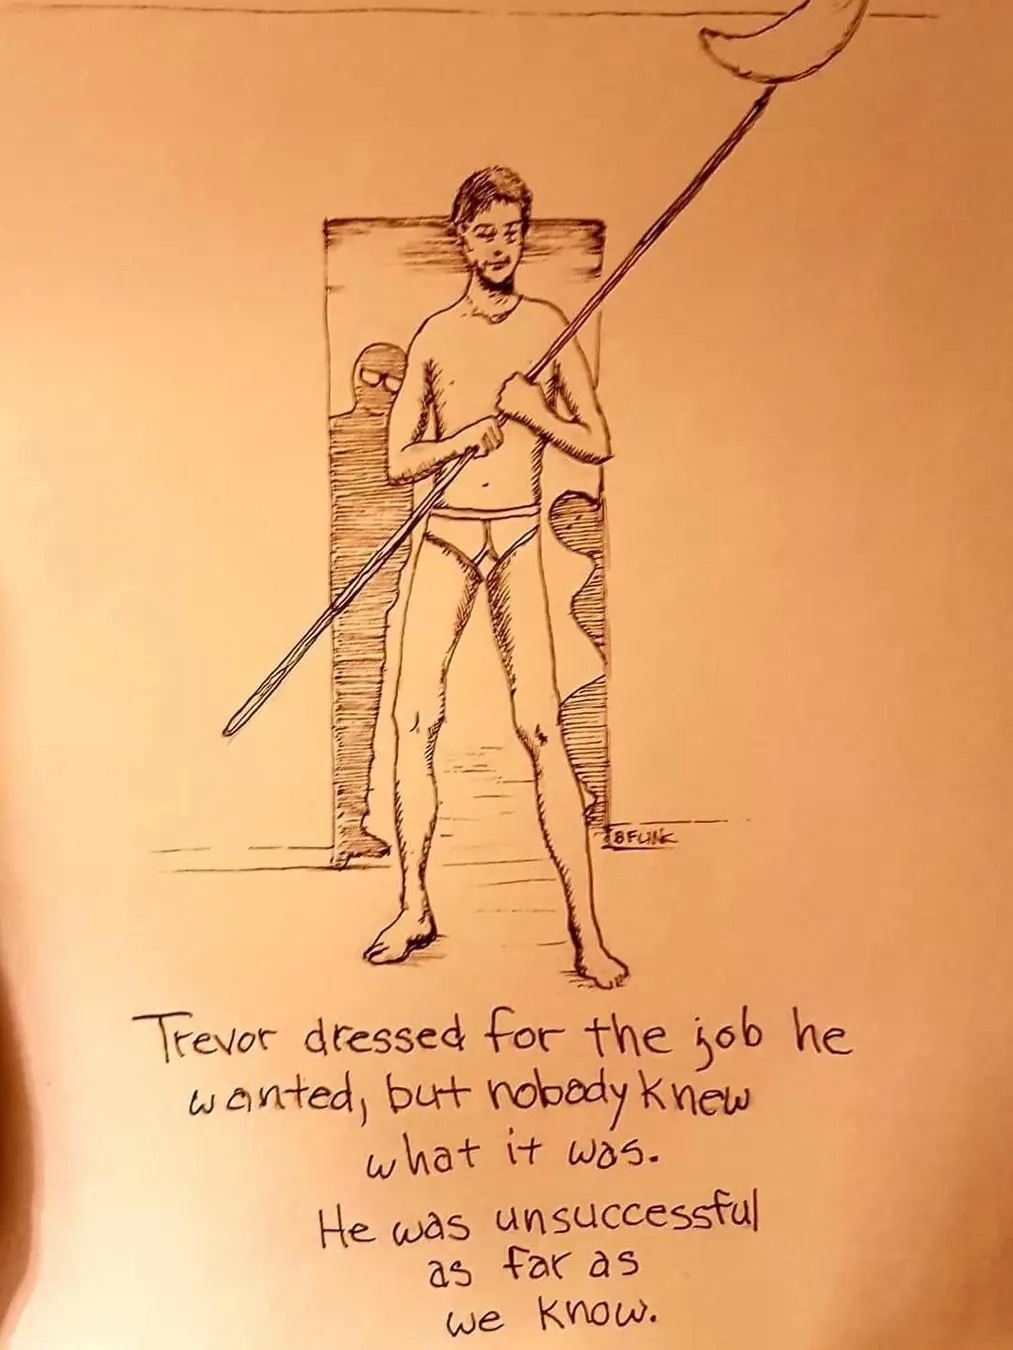 BFUNK
Trevor dressed for the job he
wanted, but nobody knew
what it was.
He was unsuccessful
as far as
we know.